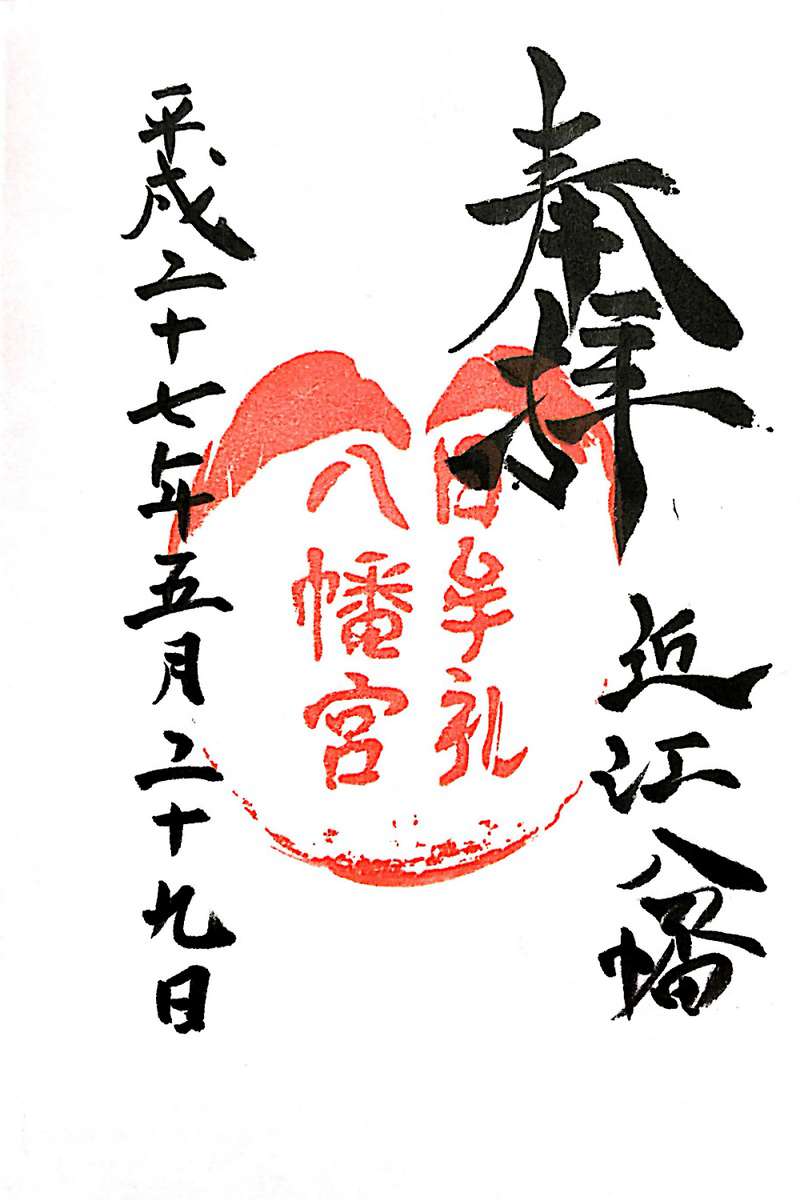 奉拝
近江八幡
日牟礼
八幡宮
平成二十七年五月二十九日